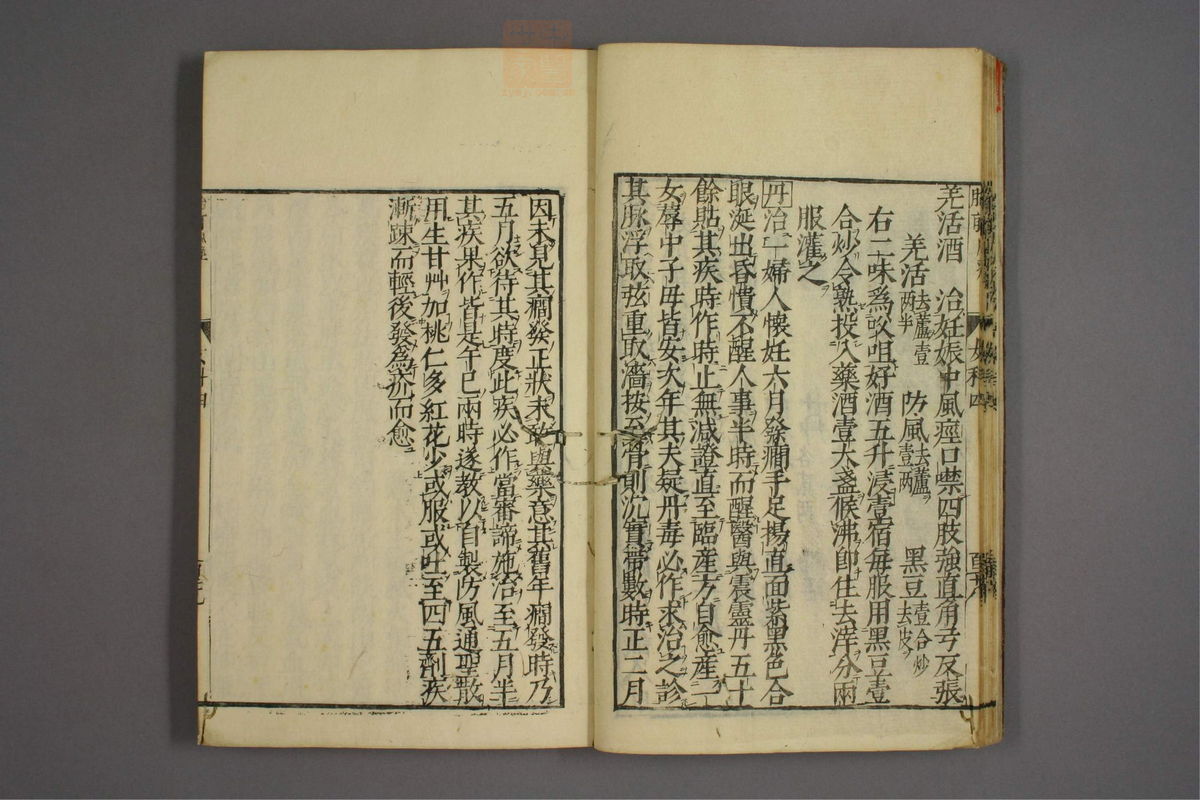 羗活酒　治妊娠中風痙口噤四肢強直角弓反張
羗活去蘆壹两半　防風去蘆壹两　黑豆壹合炒去皮
右二味爲㕮咀好酒五升浸壹宿每服用黑豆壹
合炒令熟投入藥酒壹大盞候沸即住去滓分兩
服灌之
丹治一婦人懷妊六月發癎手足揚直面紫黑色合
眼涎出昏憒不醒人事半時而醒醫與震靈丹五十
餘貼其疾時作時止無減證直至臨産方自愈産一
女蓐中子母皆安次年其夫疑丹毒必作求治之診
其脉浮取弦重取濇按至骨則沉實帶數時正二月
因未見其癎發正狀未敢與藥意其舊年癎發時乃
五月欲待其時度此疾必作當審諦施治至五月半
其疾果作皆是午巳兩時遂教以自製防風通聖散
用生甘艸加桃仁多紅花少或服或吐至四五劑疾
漸踈而輕後發爲疥而愈
女科四